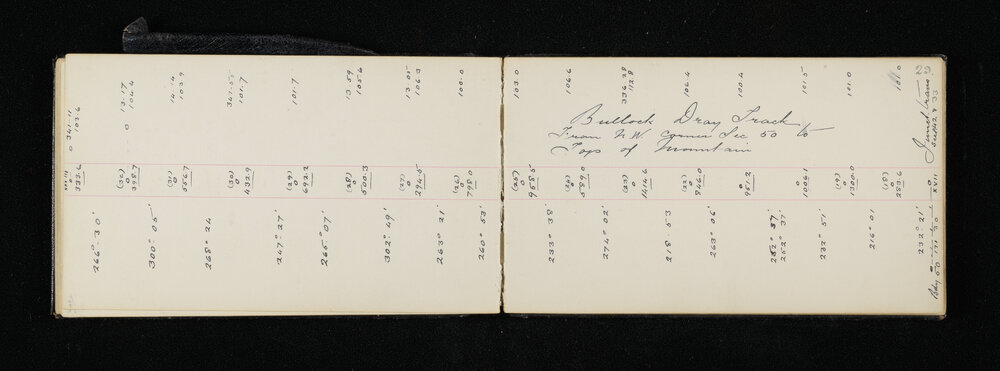 Bullock Dray Track
From N.W. Corner Sec 50 to
Top of Mountain
0 341·11
103.6
13.17
0 104.4
14.14
103.9
341.55
101.7
101.7
13.59
105.6
13.05
106.3
100.0
103.0
106.6
336.28
112.8
106.4
100.4
101.5
101.0
101.0
29
0
333.6
(32)
0
398.7
(31)
0
556.7
(30)
0
432.9
(29)
0
692.2
(28)
0
500.3
(27)
0
294.5
(26)
0
798.0
(25)
0
958.5
(24)
0
589.0
(23)
0
1414.6
(22)
0
846.0
0
951.2
0
1006.1
(19)
0
1300.0
(18)
0
283.6
0
XVIII
266° 30'
300° 05'
268° 24
247° 27'
265° 07'
302° 49'
263° 21'
260° 53'
233° 38'
274° 02'
218° 53
263° 06'
252° 37'
252° 37'
232° 51'
216° 01
232° 21'